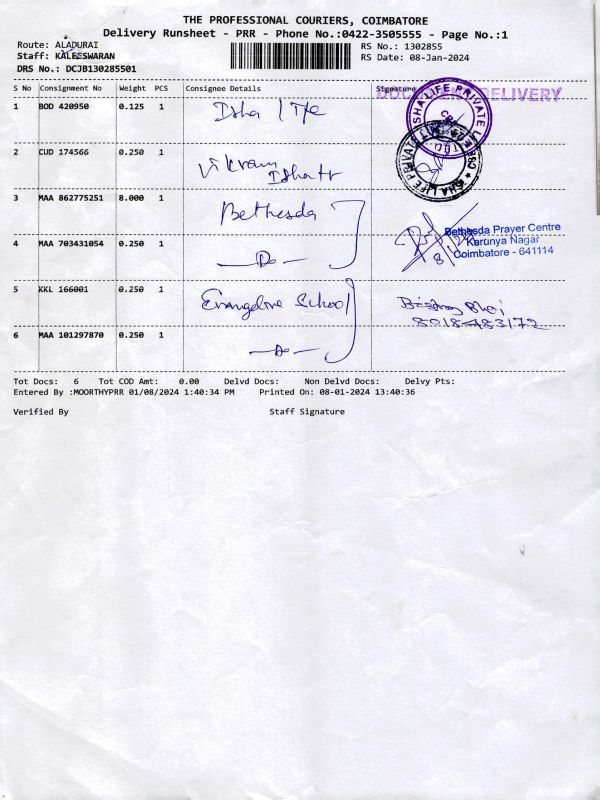 THE PROFESSIONAL COURIERS, COIMBATORE
Delivery Runsheet - PRR - Phone No.:0422-3505555 - Page No.:1
Route: ALADURAI
RS No.: 1302855
Staff: KALEESWARAN
RS Date: 08-Jan-2024
DRS No.: DCJB130285501
S No Consignment No Weight PCS Consignee Details Signature
DELIVERY
1 BOD 420950 0.125 1 Isha Life
ISHA LIFE PRIVATE LIMITED
2 CUD 174566 0.250 1 Vikram
ISHA LIFE PRIVATE
3 MAA 862775251 8.000 1 Bethesda
Bethesda Prayer Centre
Karunya Nagar
Coimbatore - 641114
4 MAA 703431054 0.250 1 — Do —
5 KKL 166001 0.250 1 Evangeline School
8018483172
6 MAA 101297870 0.250 1 — Do —
Tot Docs: 6 Tot COD Amt: 0.00 Delvd Docs: Non Delvd Docs: Delvy Pts:
Entered By :MOORTHYPRR 01/08/2024 1:40:34 PM Printed On: 08-01-2024 13:40:36
Verified By Staff Signature